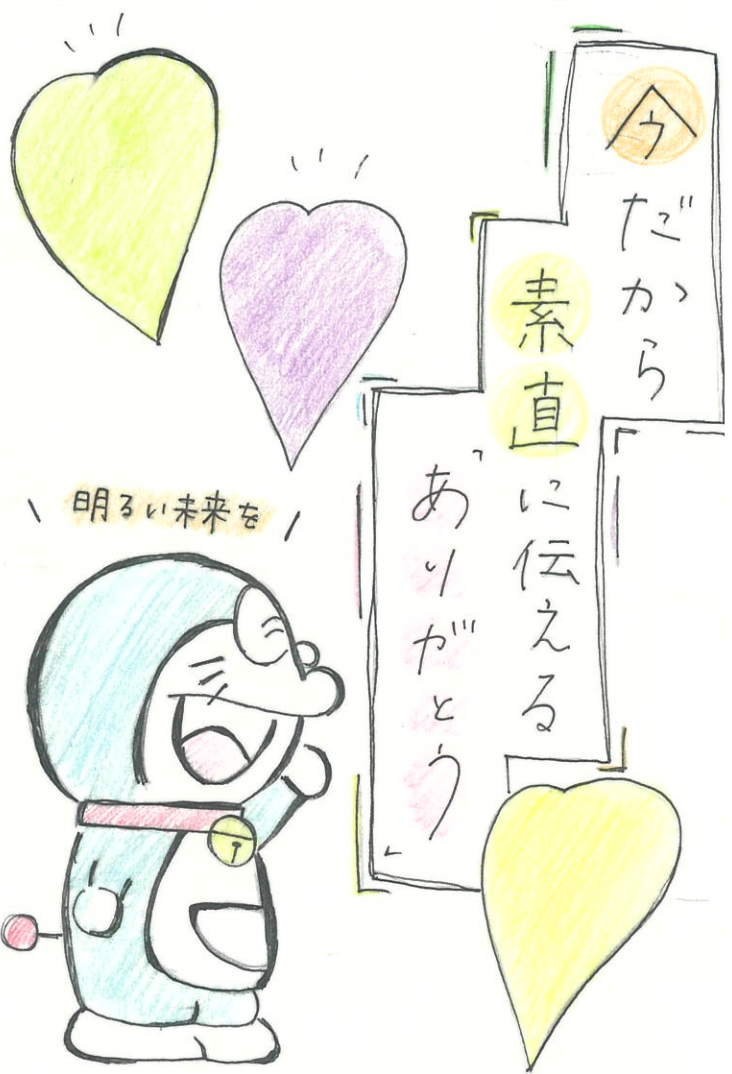 今だから
素直に伝える
「ありがとう」
明るい未来を